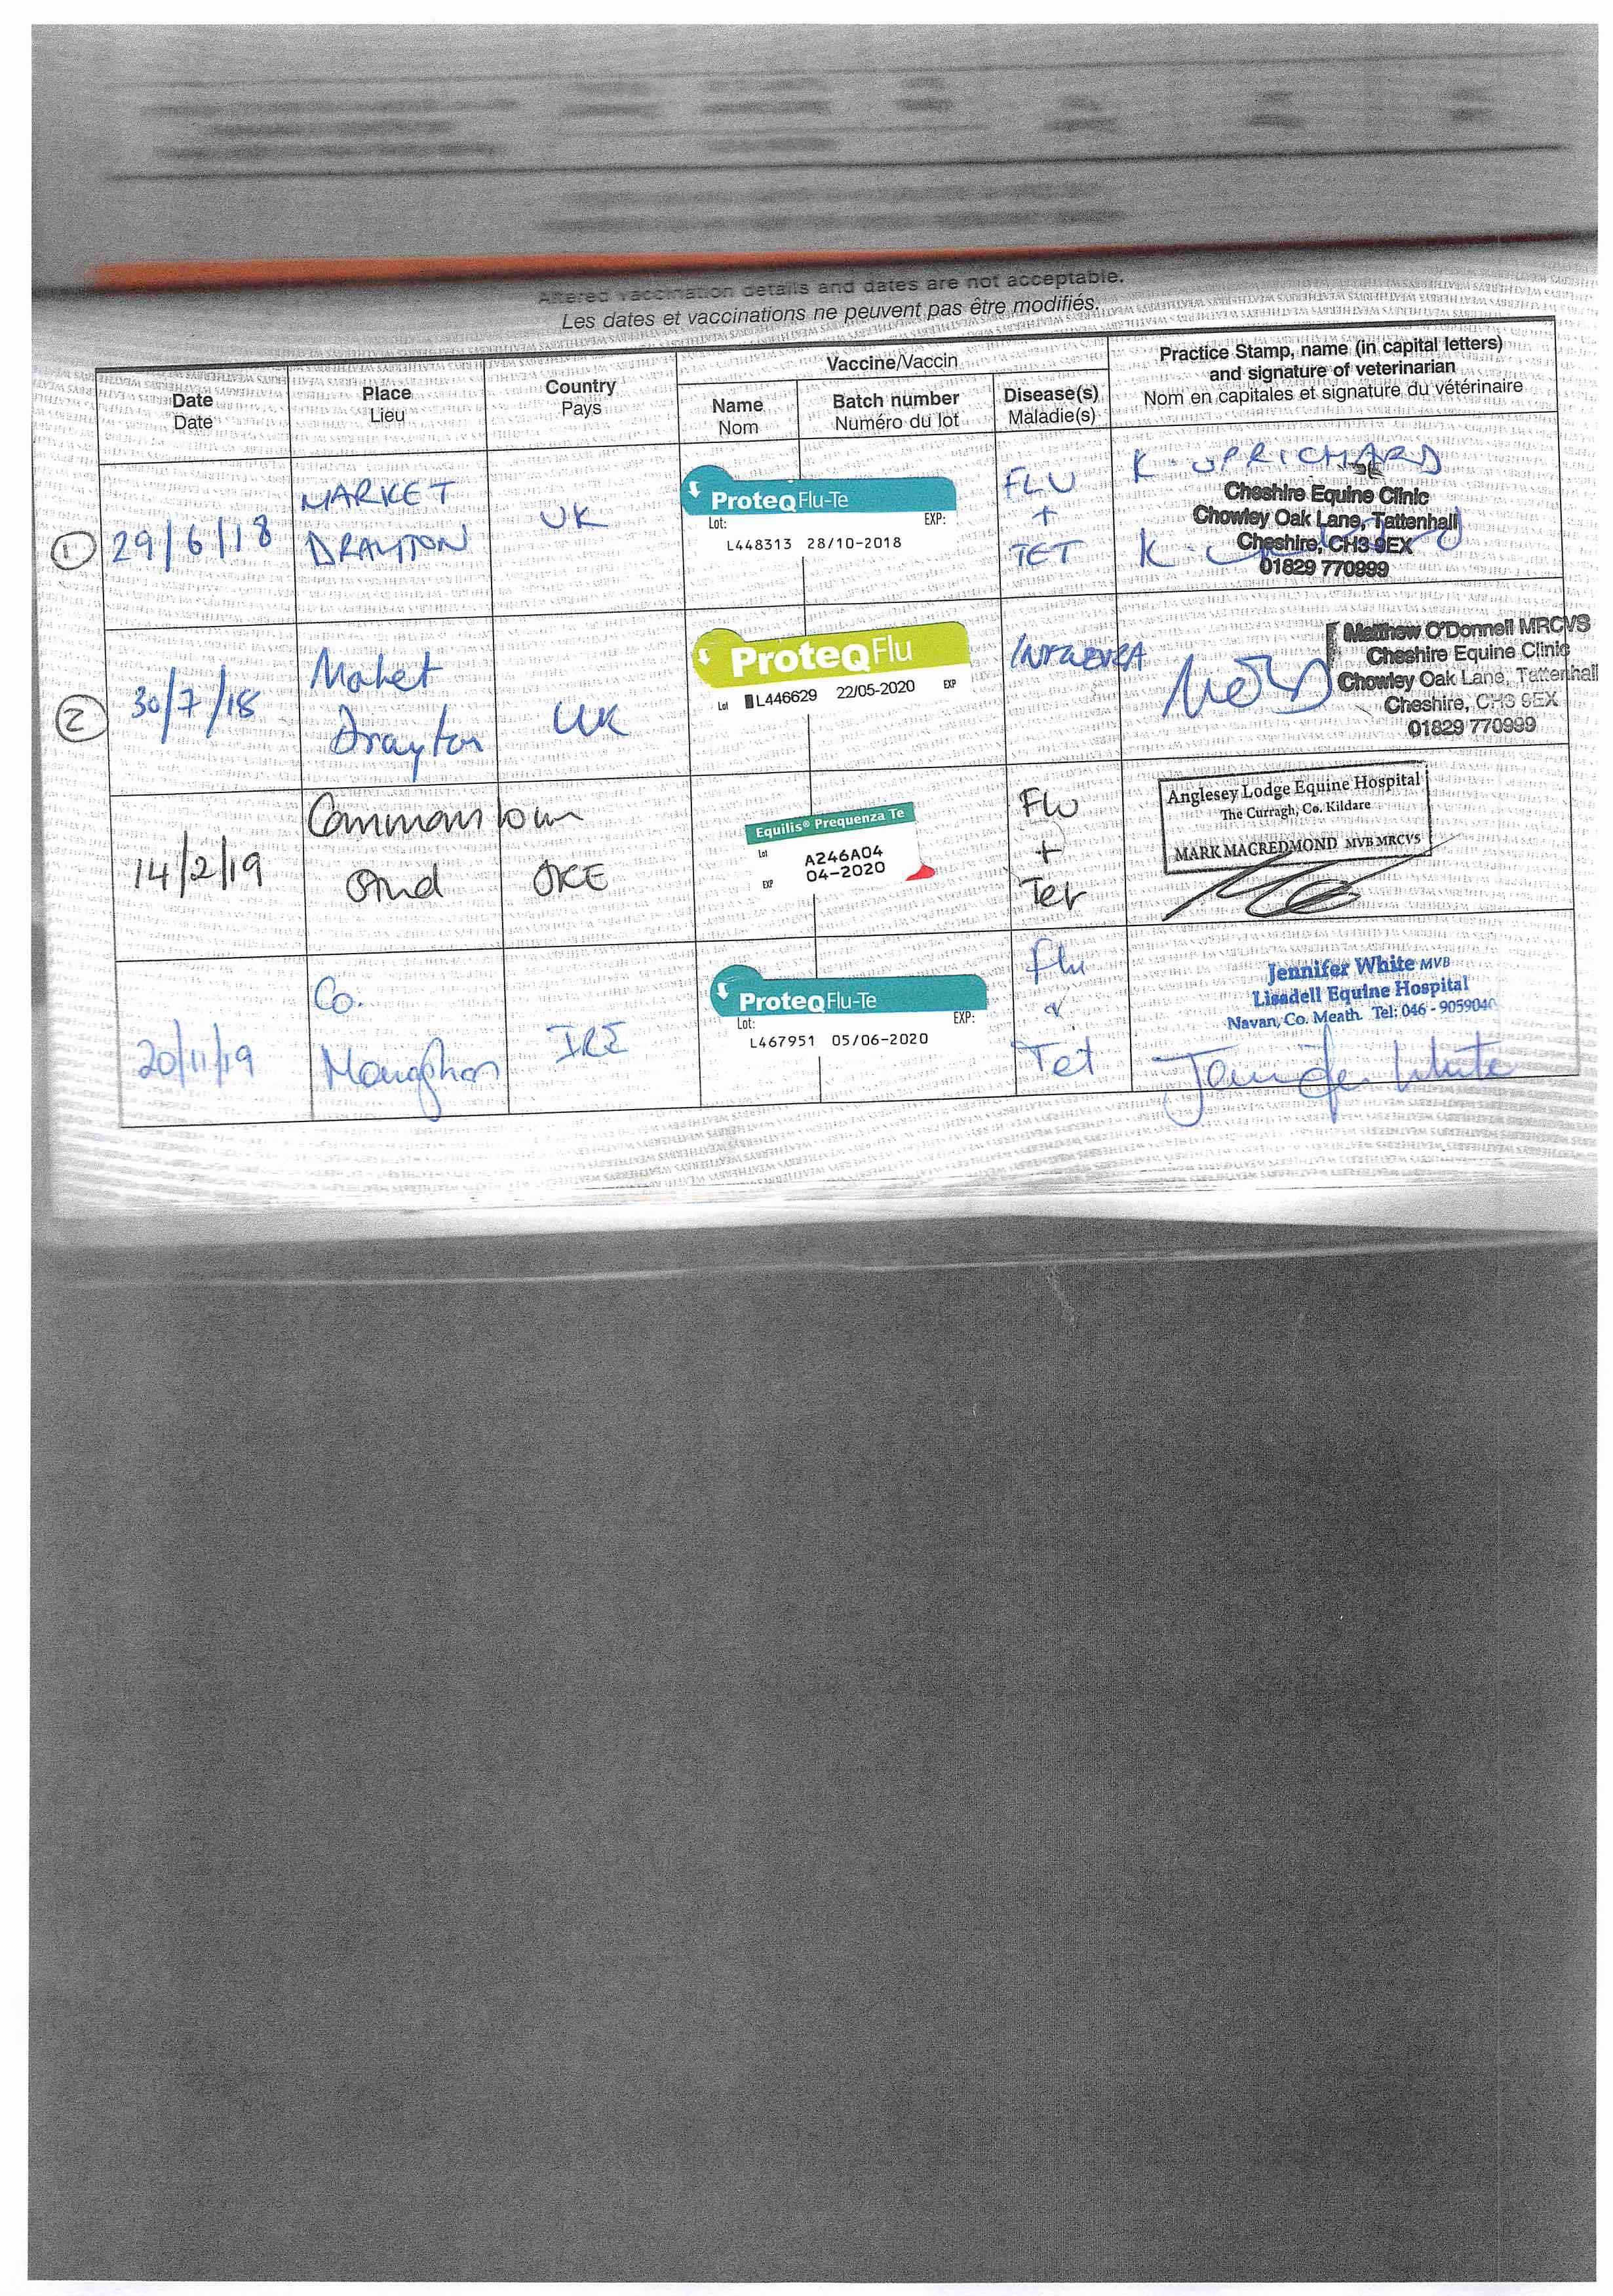 Altered vaccination details and dates are not acceptable.
Les dates et vaccinations ne peuvent pas être modifiés.
Date
Date
Place
Lieu
Country
Pays
Vaccine/Vaccin
Name
Nom
Batch number
Numéro du lot
Disease(s)
Maladie(s)
Practice Stamp, name (in capital letters)
and signature of veterinarian
Nom en capitales et signature du vétérinaire
1
29/6/18
MARKET
DRAYTON
UK
ProteQ Flu-Te
Lot: EXP:
L448313 28/10-2018
FLU
+
TET
K. UPRICHARD
Cheshire Equine Clinic
Chowley Oak Lane, Tattenhall
Cheshire, CH3 9EX
01829 770999
2
30/7/18
Market
Drayton
UK
ProteQ Flu
Lot L446629 22/05-2020 EXP
Matthew O'Donnell MRCVS
Cheshire Equine Clinic
Chowley Oak Lane, Tattenhall
Cheshire, CH3 9EX
01829 770999
14/2/19
Commonstown
Stud
IRE
Equilis® Prequenza Te
Lot A246A04
EXP 04-2020
Flu
+
Tet
Anglesey Lodge Equine Hospital
The Curragh, Co. Kildare
MARK MACREDMOND MVB MRCVS
20/11/19
Co.
IRE
ProteQ Flu-Te
Lot: EXP:
L467951 05/06-2020
flu
&
Tet
Jennifer White MVB
Lisadell Equine Hospital
Navan, Co. Meath. Tel: 046 - 9059040
Jennifer White